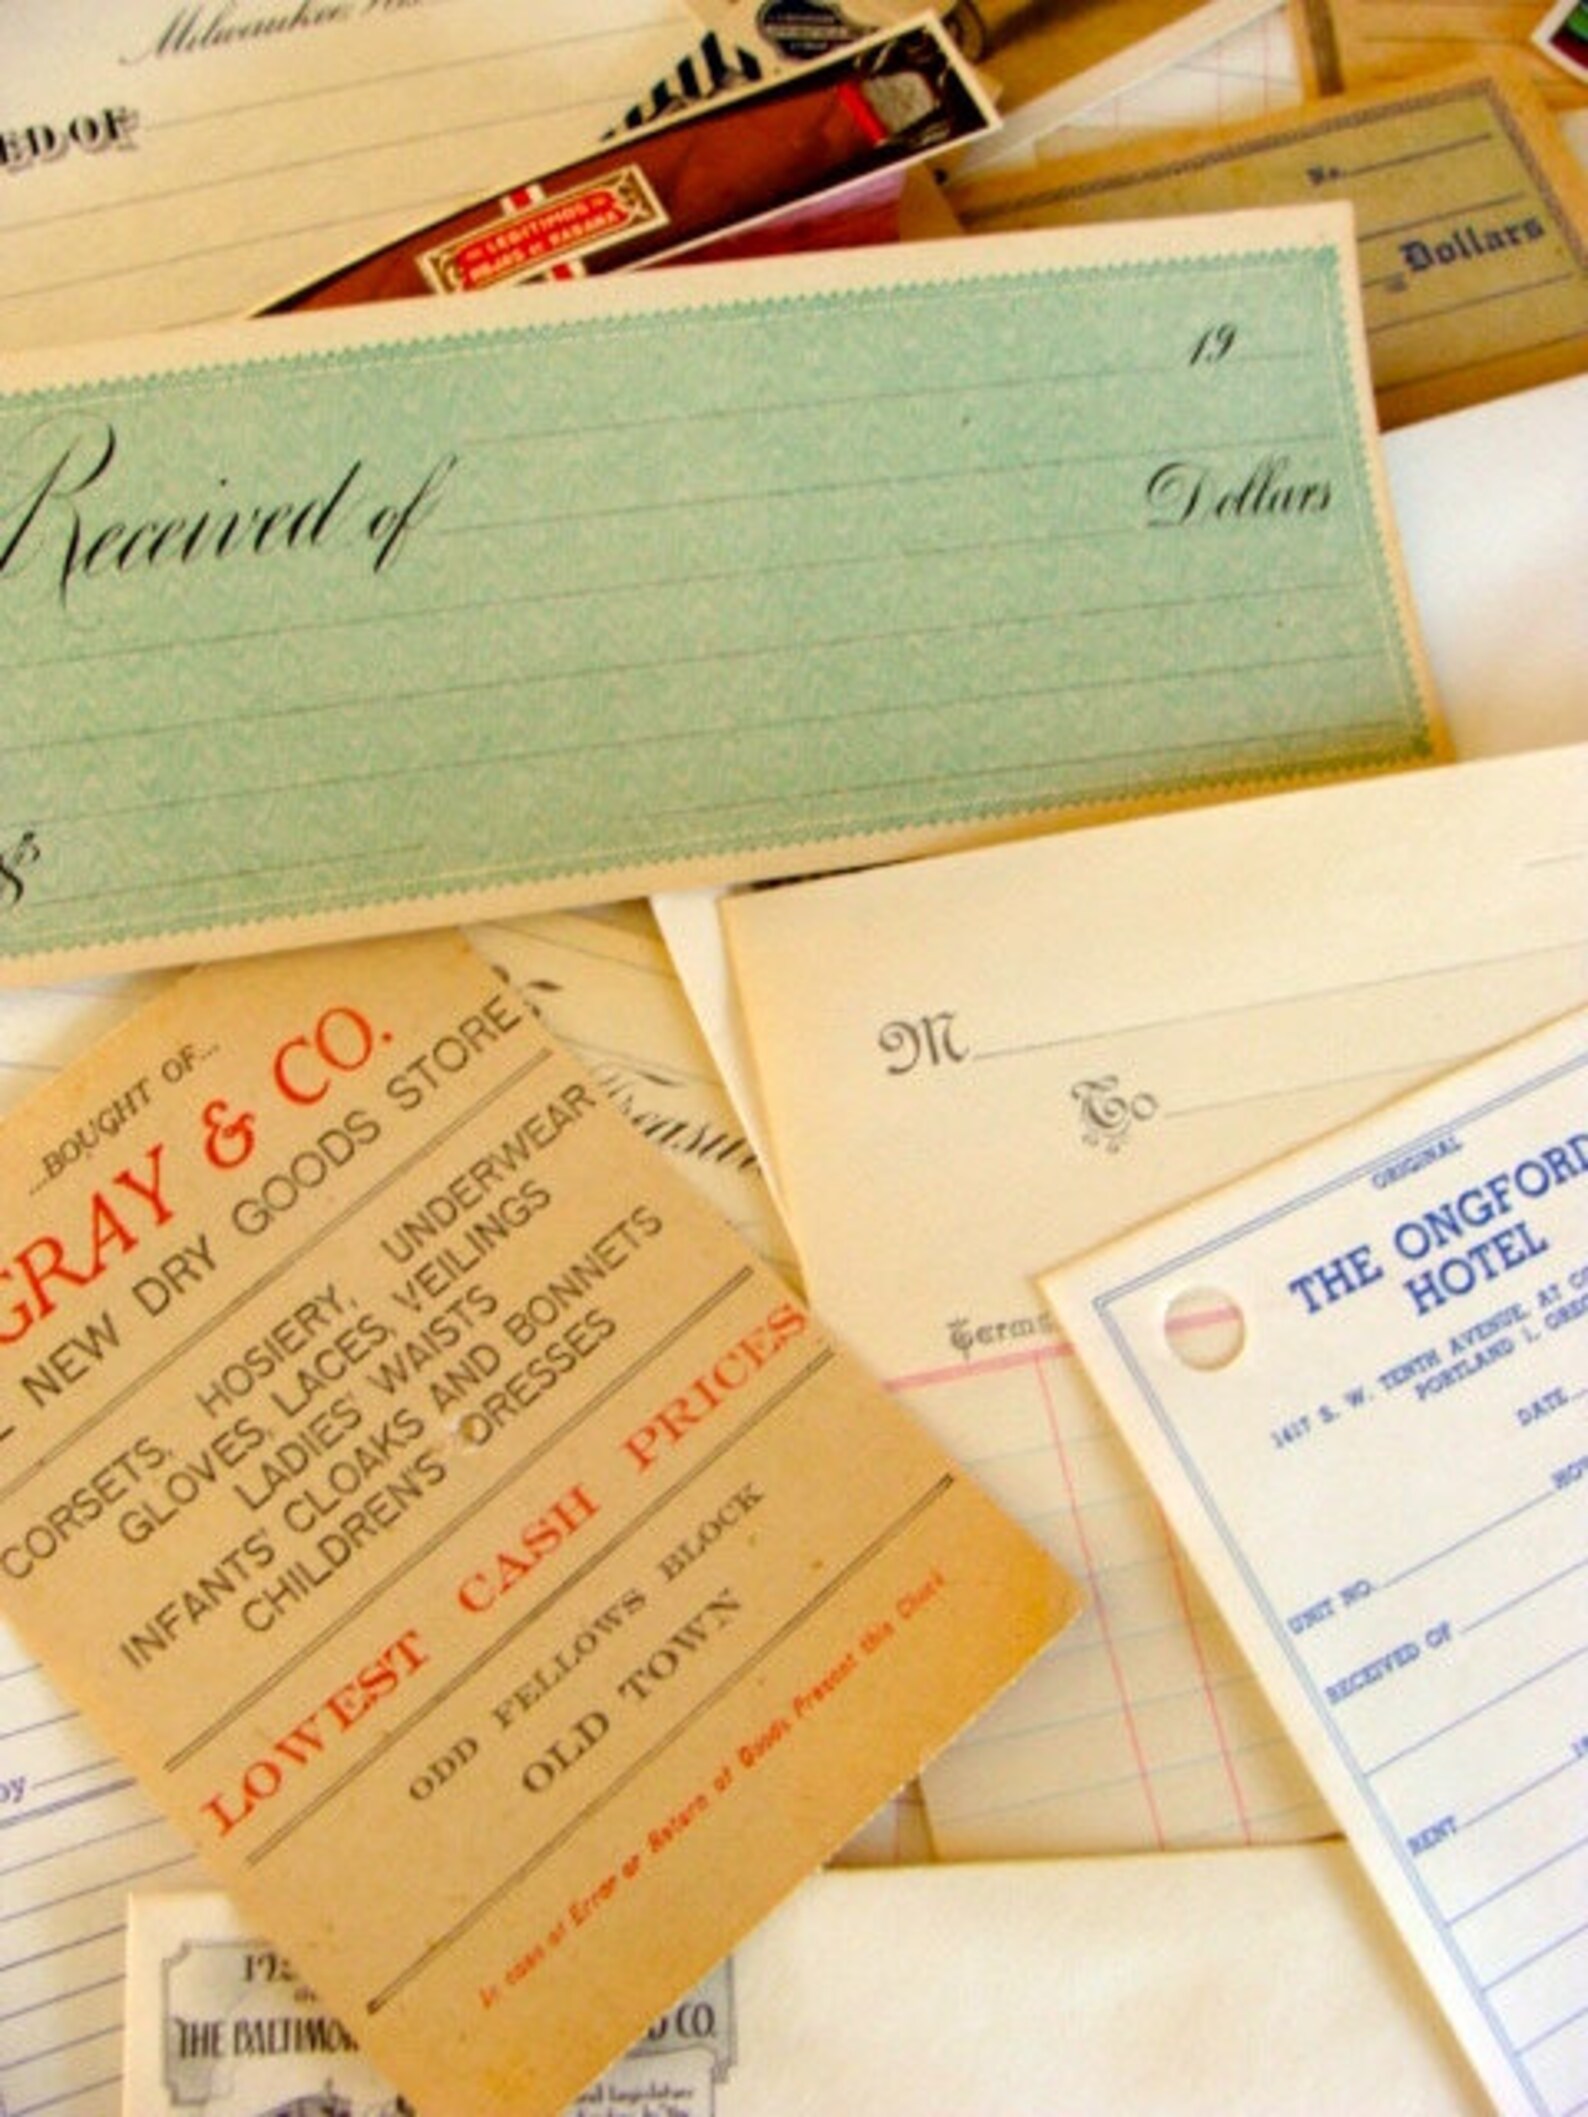 Milwaukee,
ED OF
LEGITIMOS
No.
Dollars
19
Received of
Dollars
$
M
To
Terms
...BOUGHT OF...
GRAY & CO.
NEW DRY GOODS STORE
CORSETS, HOSIERY, UNDERWEAR
GLOVES, LACES, VEILINGS
LADIES' WAISTS
INFANTS' CLOAKS AND BONNETS
CHILDREN'S DRESSES
LOWEST CASH PRICES
ODD FELLOWS BLOCK
OLD TOWN
In case of Error or Return of Goods Present this Check
ORIGINAL
THE ONGFORD
HOTEL
1417 S. W. TENTH AVENUE, AT CO
PORTLAND 1, OREG
DATE
UNIT NO.
RECEIVED OF
RENT
by
THE BALTIMO
CO.